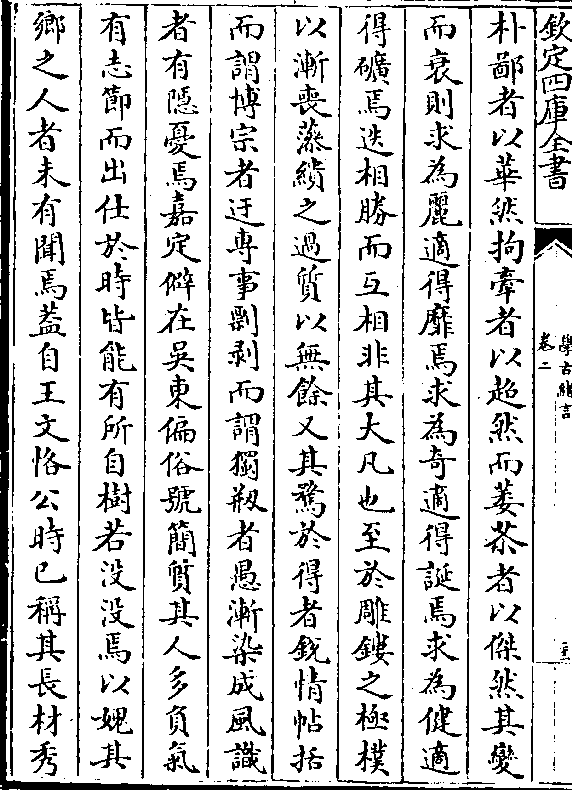 欽定四庫全書
學古緒言
卷二
朴鄙者以華然拘牽者以超然而萎苶者以傑然其變
而衰則求為麗適得靡焉求為奇適得誕焉求為健適
得礦焉迭相勝而互相非其大凡也至於雕鏤之極樸
以漸喪藻繢之過質以無餘又其騖於得者銳情帖括
而謂博宗者迂專事剽剥而謂獨剏者愚漸染成風識
者有隱憂焉嘉定僻在吳東偏俗號簡質其人多負氣
有志節而出仕於時皆能有所自樹若没没焉以媿其
鄉之人者未有聞焉葢自王文恪公時已稱其長材秀